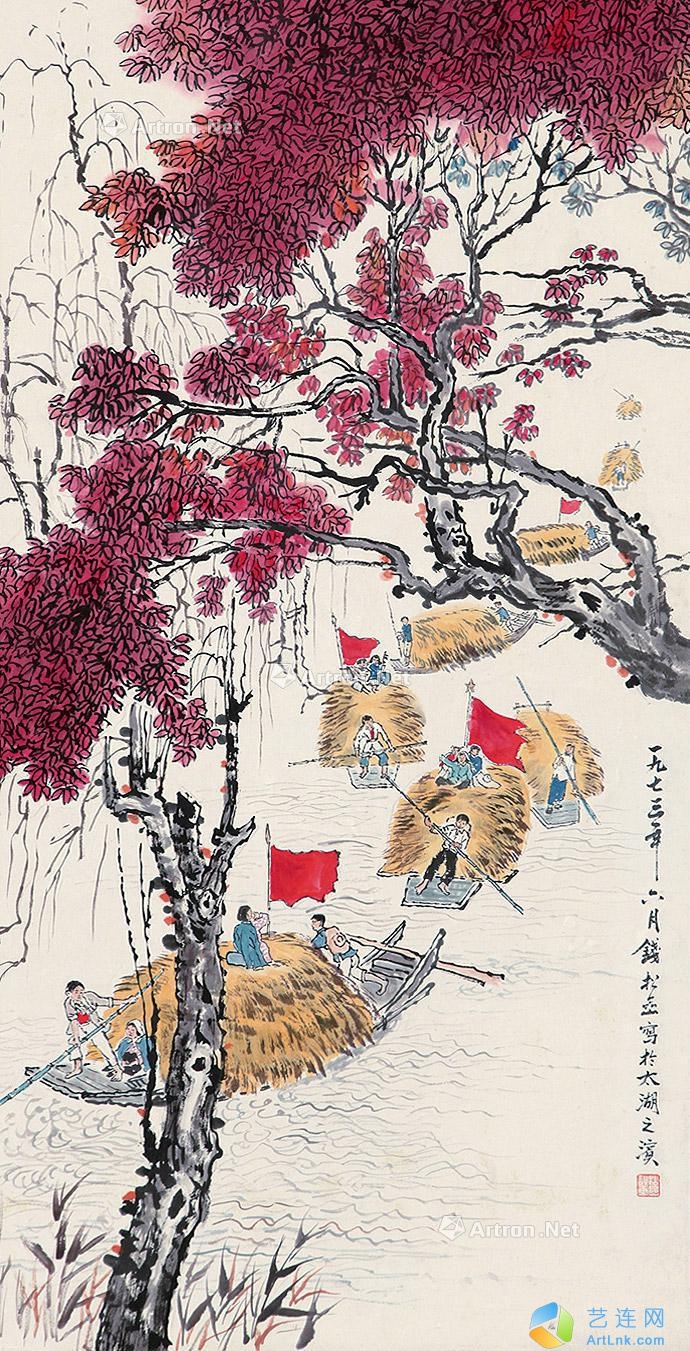 Artron.Net
Artron.Net
Artron.Net
一九七三年六月錢松喦寫於太湖之濱
艺连网
ArtLnk.com